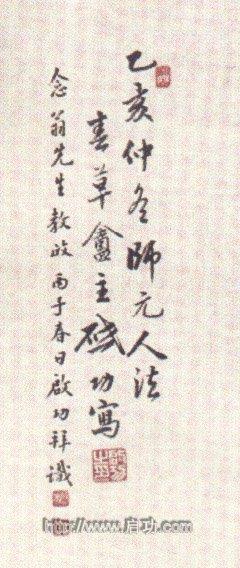 乙亥仲冬師元人法
春草盦主啟功寫
念翁先生教政 丙子春日啟功拜識
http://www.启功.com